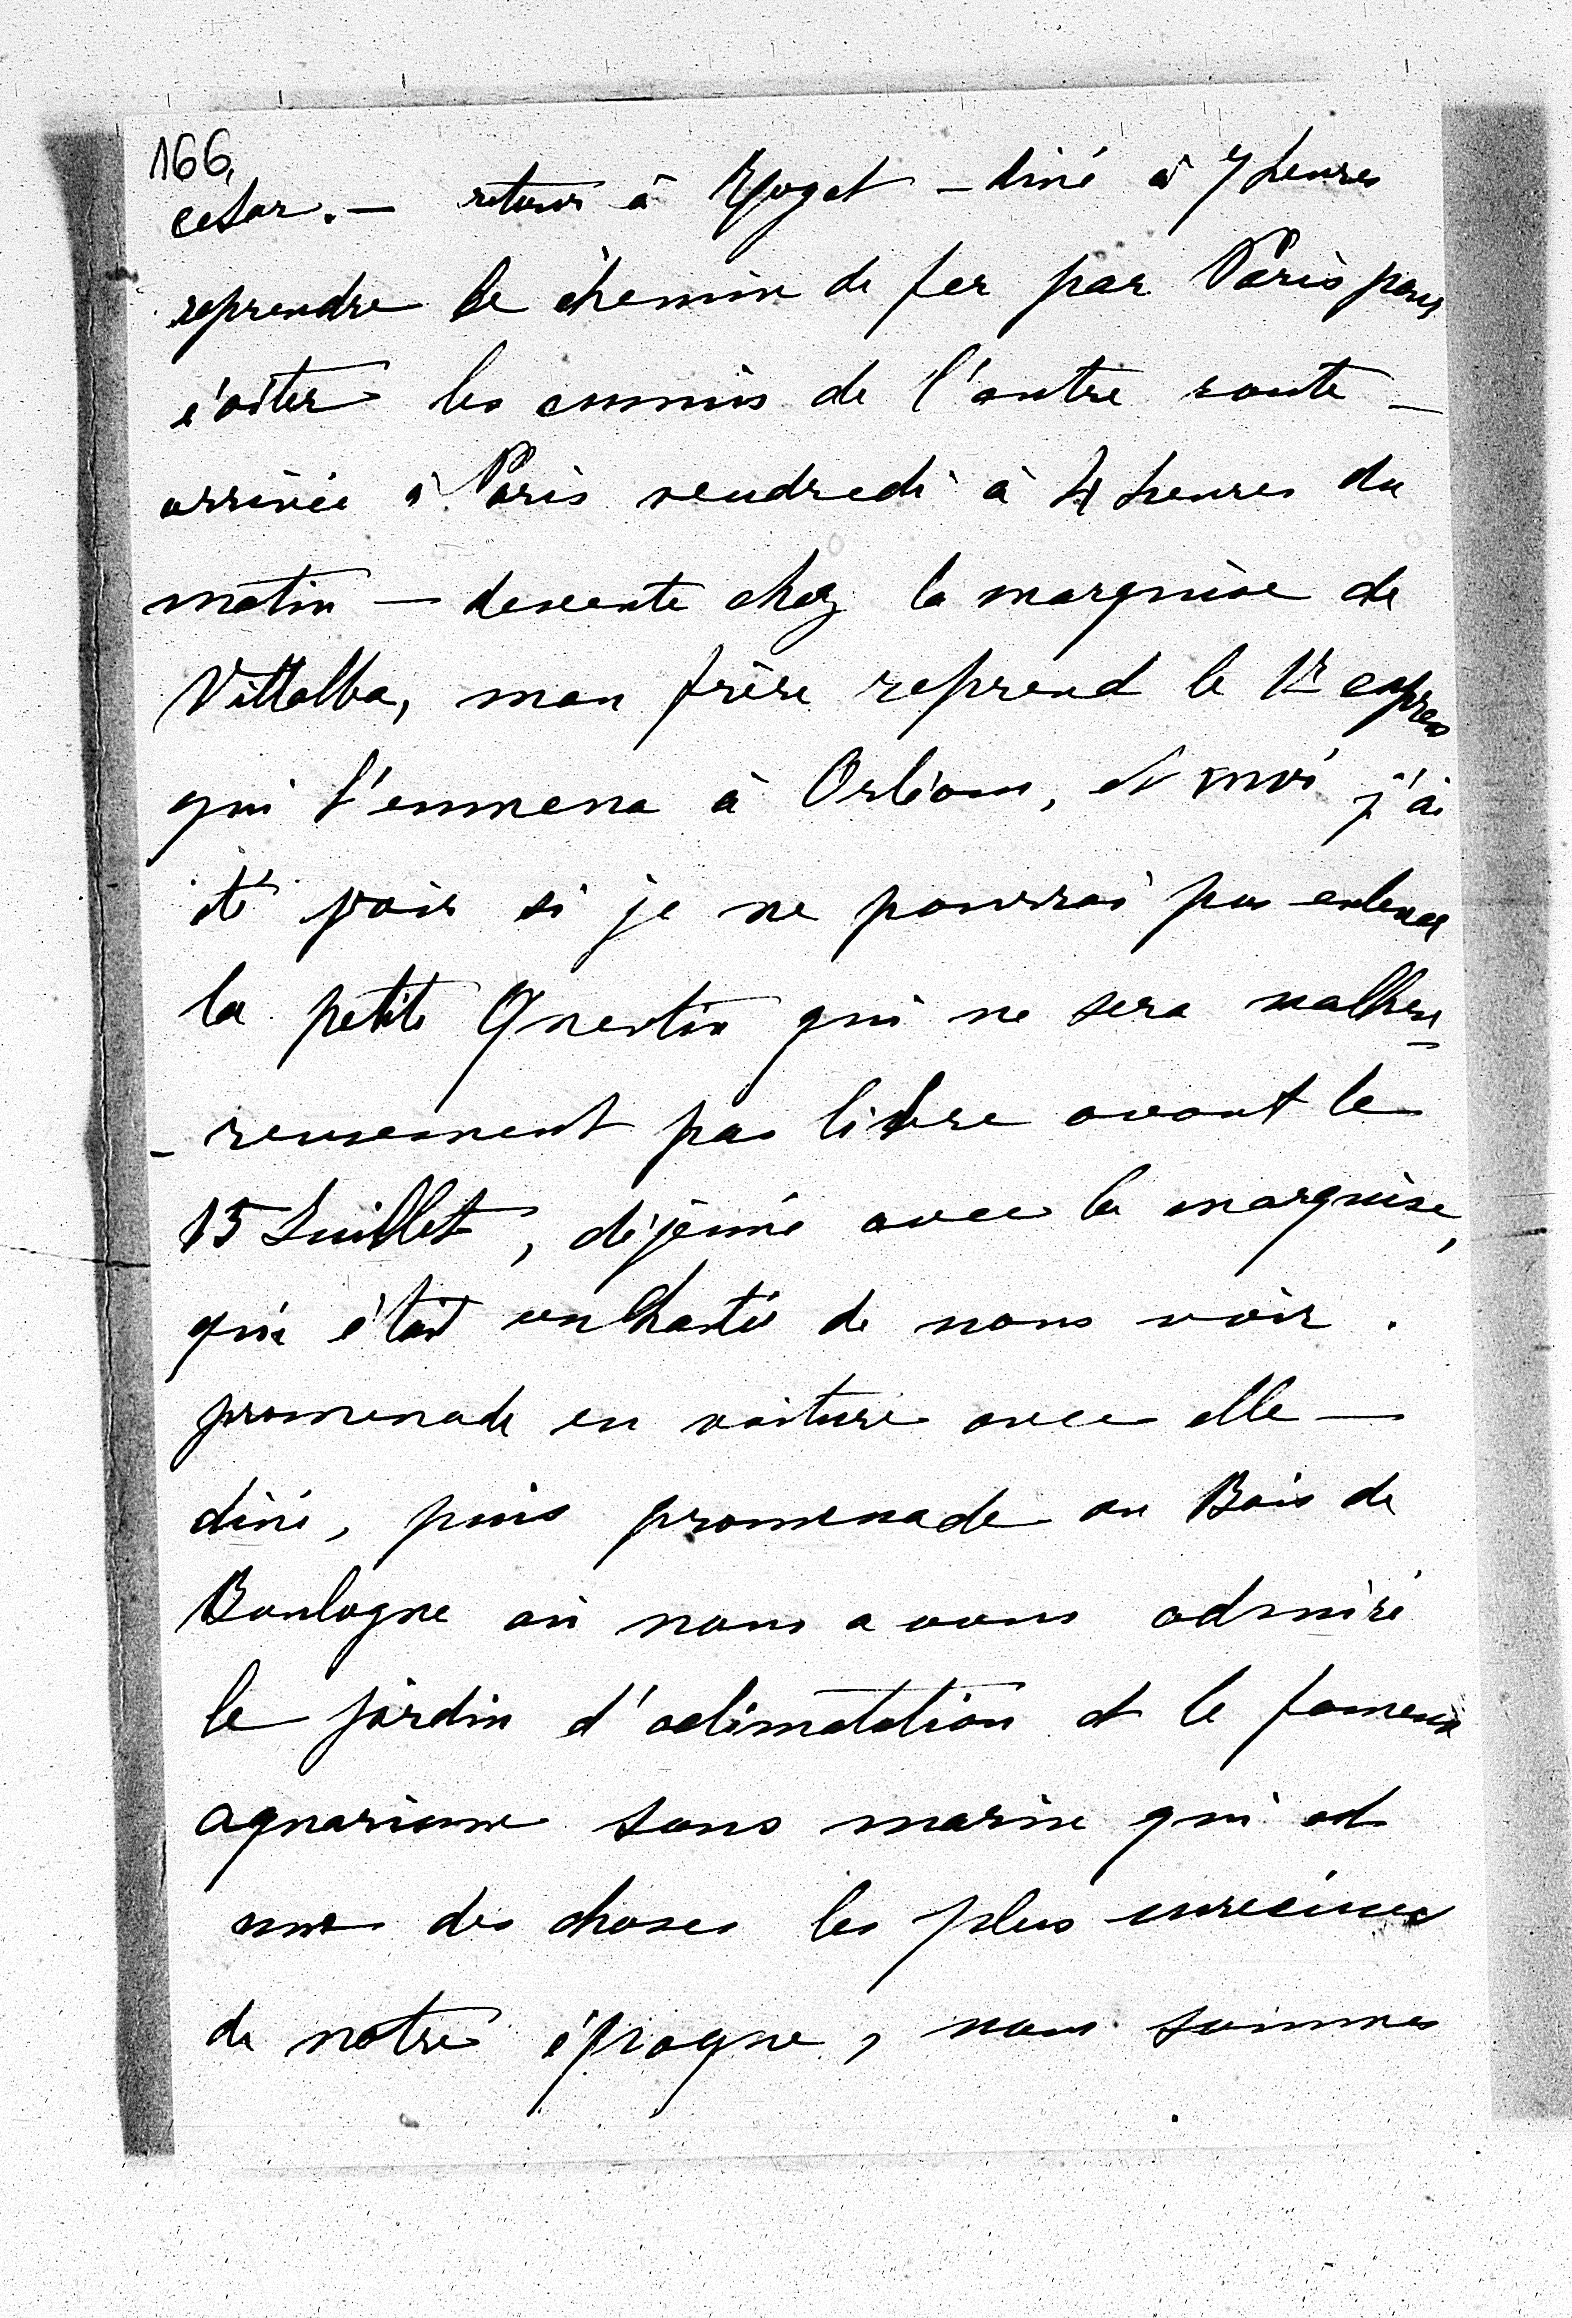 166.
cesar. — retour à Royat — diné à 7 heures
reprendre le chemin de fer par Paris pour
éviter les ennuis de l'autre route —
arrivée à Paris vendredi à 4 heures du
matin — descente chez la marquise de
Villalba, mon frère reprend le 1r express
qui l'emmena à Orléans, et moi j'ai
été voir si je ne pourrai pas enlever
la petite Quentin qui ne sera malheu
- reusement pas libre avant le
15 Juillet, déjeuné avec la marquise,
qui était enchantée de nous voir.
promenade en voiture avec elle —
diné, puis promenade au Bois de
Boulogne où nous avons admiré
le jardin d'aclimatation et le fameux
aquarium sous marin qui est
une des choses les plus curieuses
de notre époque, nous sommes